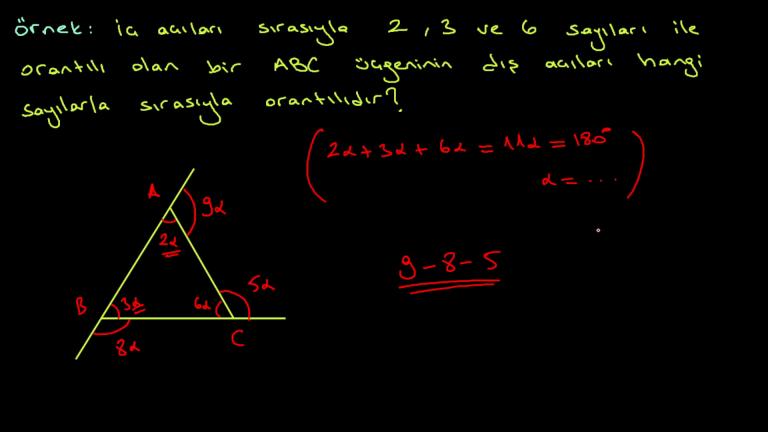 Örnek: iç açıları sırasıyla 2, 3 ve 6 sayıları ile
orantılı olan bir ABC üçgeninin dış açıları hangi
sayılarla sırasıyla orantılıdır?
2α+3α+6α=11α=180°
α=...
A
9α
2α
9-8-5
5α
B
3α
6α
8α
C